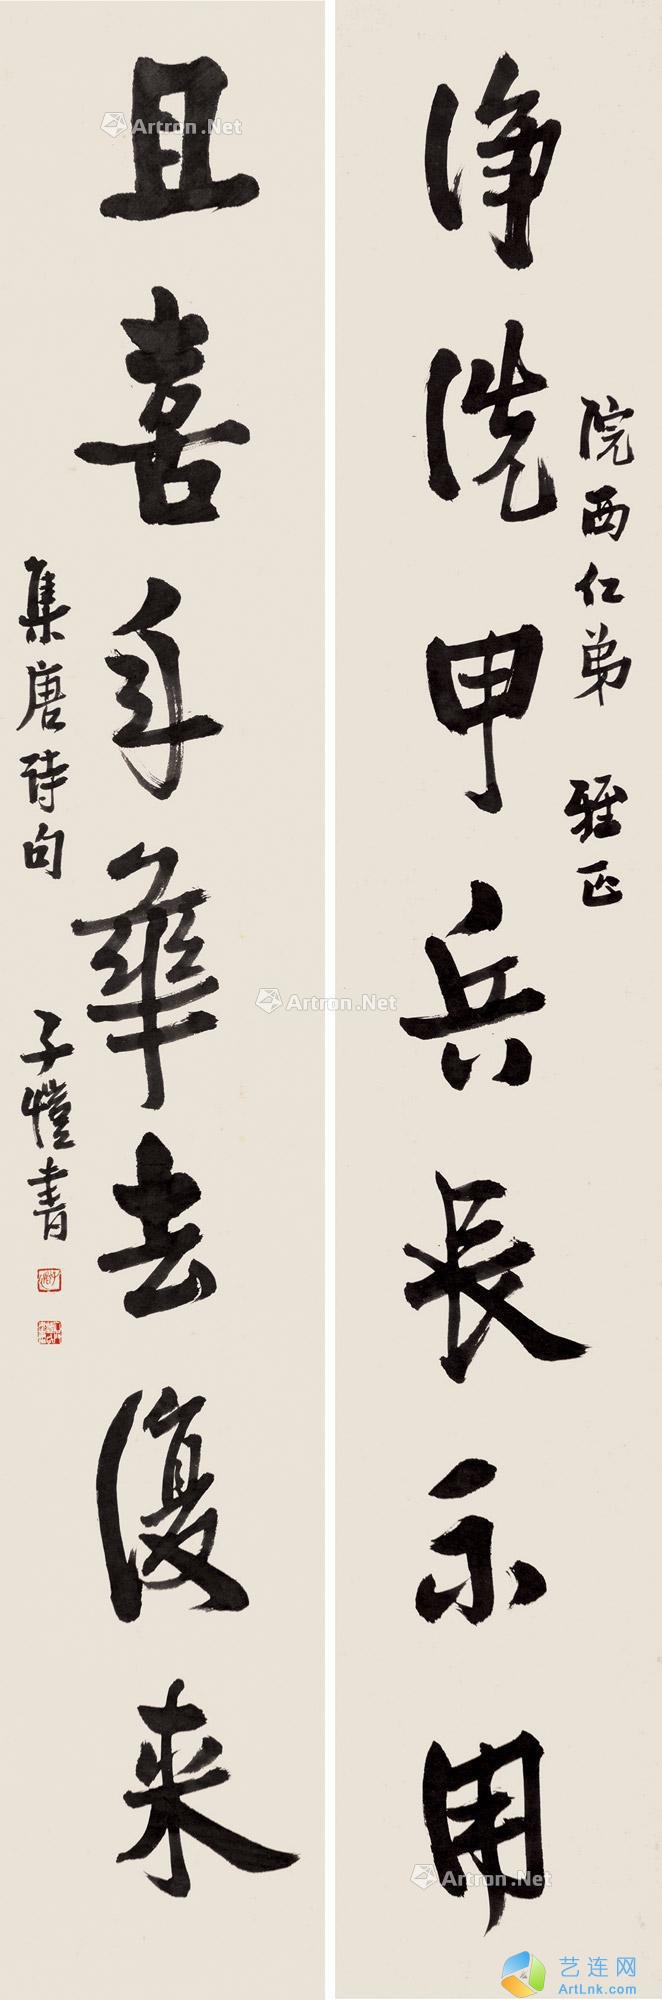 院西仁弟 雅正
净洗甲兵長不用
且喜年華去復来
集唐詩句 子愷書
Artron.Net
Artron.Net
Artron.Net
艺连网
ArtLnk.com